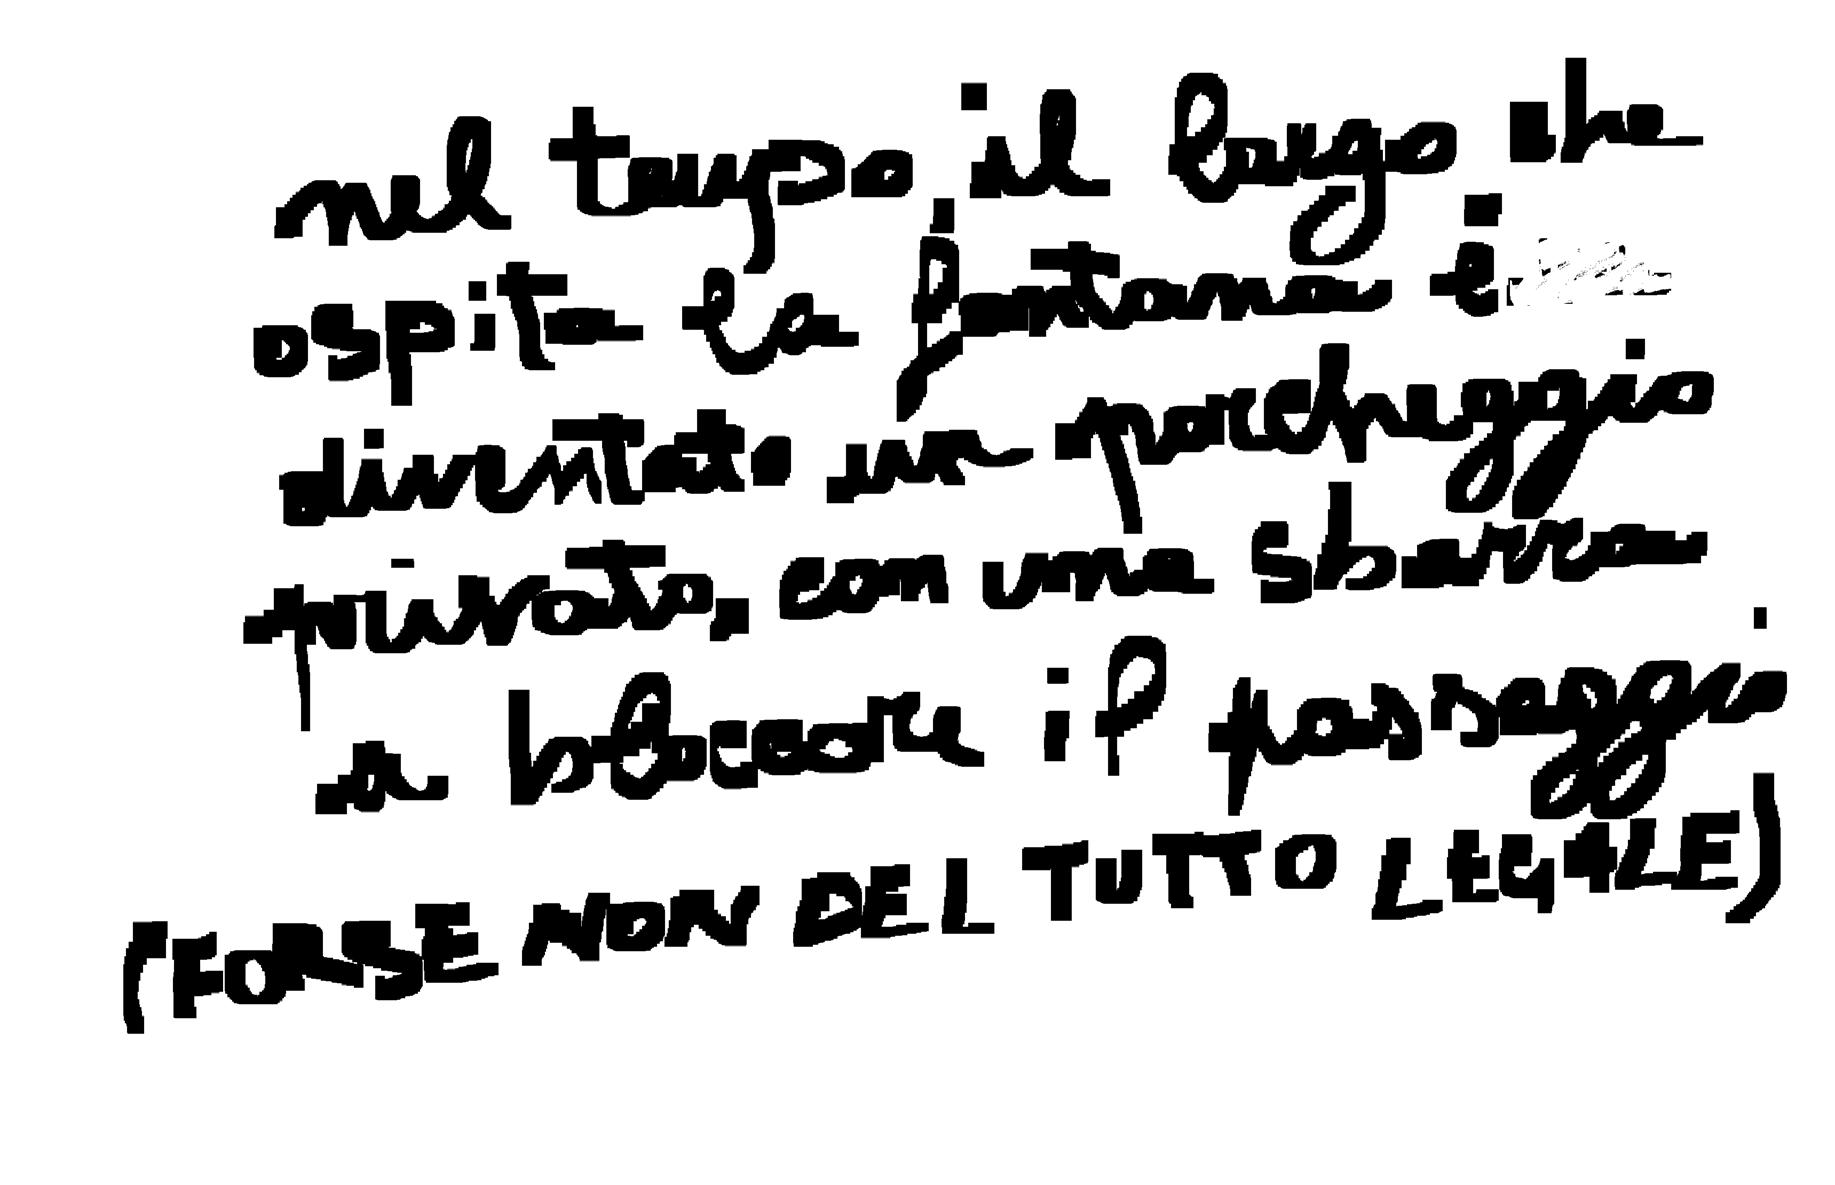 nel tempo il largo che
ospita la fontana è
diventato un parcheggio
privato, con una sbarra
a bloccare il passaggio
(FORSE NON DEL TUTTO LEGALE)